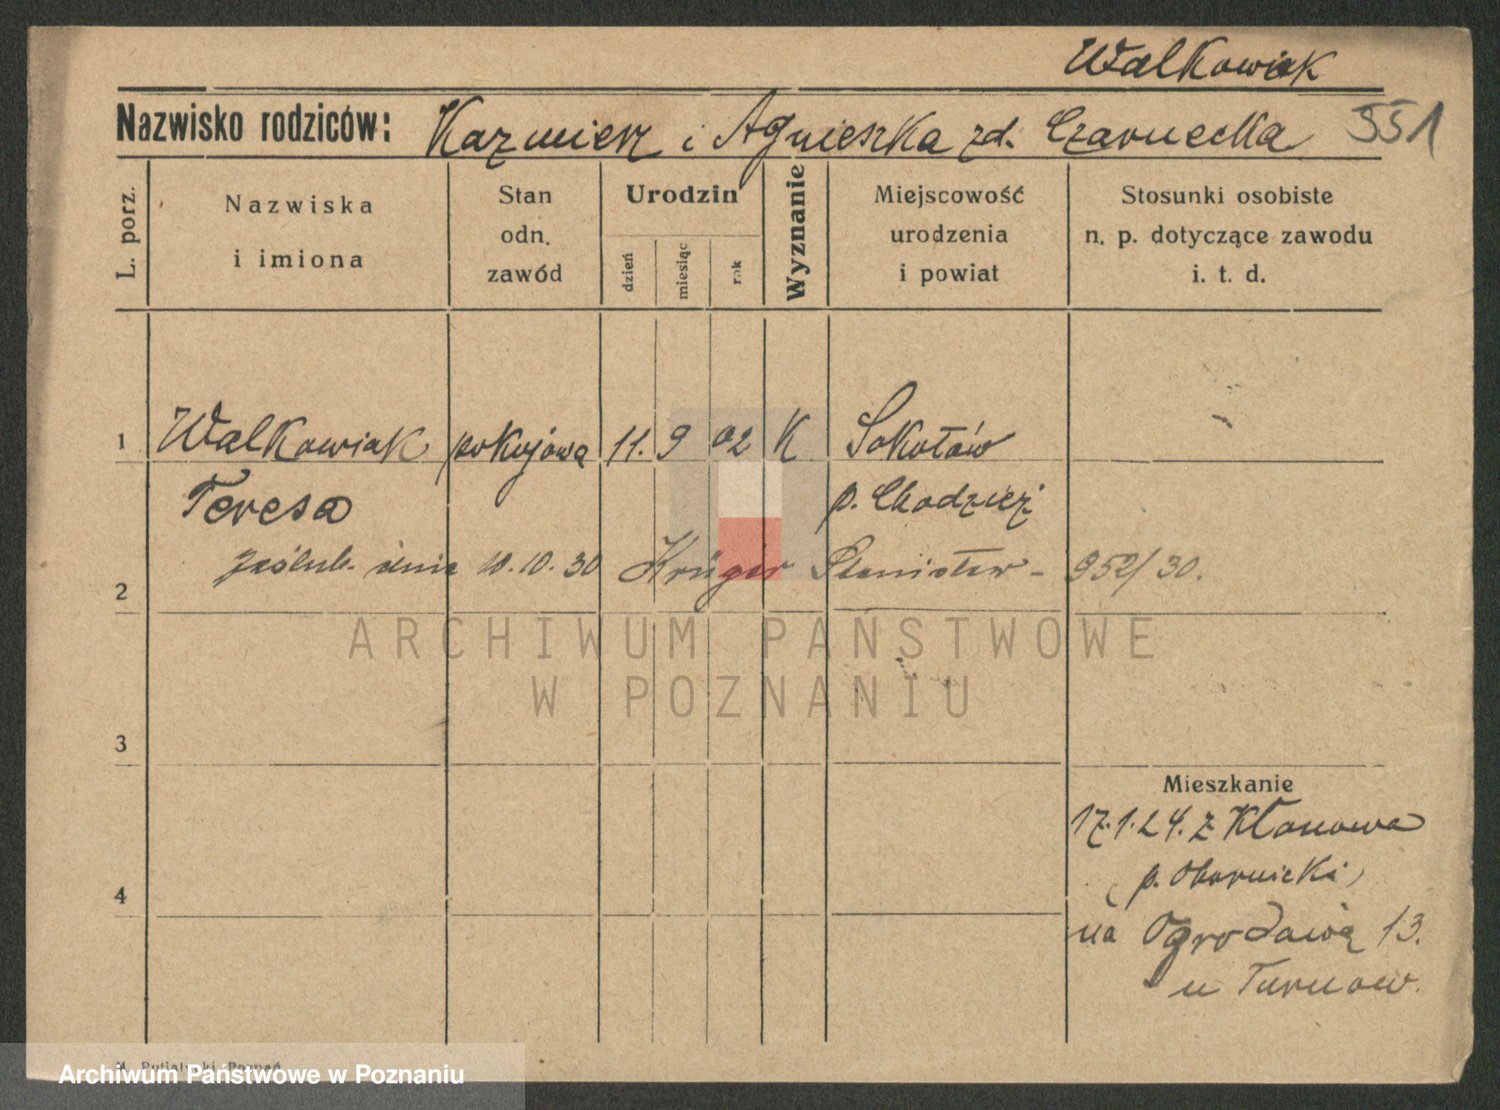 Walkowiak
Nazwisko rodziców: Kazmierz i Agnieszka zd. Czarnecka 551
L. porz.
Nazwiska
i imiona
Stan
odn.
zawód
Urodzin
dzień
miesiąc
rok
Wyznanie
Miejscowość
urodzenia
i powiat
Stosunki osobiste
n. p. dotyczące zawodu
i. t. d.
1 Walkowiak pokojowa 11. 9 02 K Sokołów
Teresa p. Chodzież
2 zaślub. dnia 10.10.30 Krüger Stanisław - 952/30.
ARCHIWUM PAŃSTWOWE
W POZNANIU
3
Mieszkanie
17.1.24. z Kłonowa
4 (p. Obornicki)
na Ogrodową 13.
u Turnow.
Poznań
Archiwum Państwowe w Poznaniu